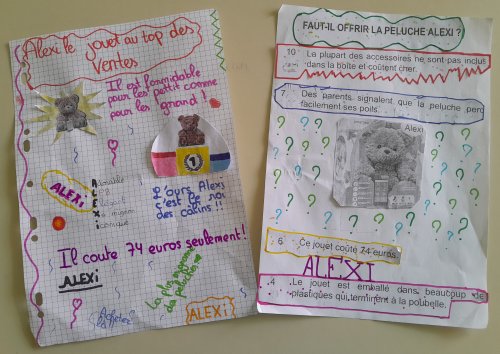 Alexi le jouet au top des
ventes
Il est formidable
pour les petit comme
pour les grand !
ALEXi
A
L
E
X
I
1
L'ours Alexi
c'est le roi
des calins !!
Il coute 74 euros seulement !
ALEXi
La plus
peluche
Acheter
ALEXI
FAUT-IL OFFRIR LA PELUCHE ALEXI ?
10 La plupart des accessoires ne sont pas inclus
dans la boîte et coûtent cher.
7 Des parents signalent que la peluche perd
facilement ses poils.
Alexi
? ? ? ? ? ?
6 Ce jouet coûte 74 euros.
ALEXI
4 Le jouet est emballé dans beaucoup de
plastiques qui terminent à la poubelle.